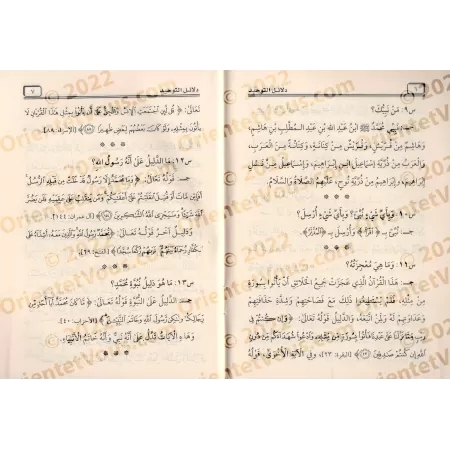 ٦
دلائل التوحيد
س٩. مَنْ نَبِيُّكَ؟
جـ: نبيي محمد ﷺ ابنُ عَبْدِ اللهِ بنِ عبدِ المُطَّلِبِ بنِ هَاشِمٍ،
وَهَاشِمٌ مِنْ قُرَيْشٍ، وَقُرَيْشٌ مِنْ كِنَانَةَ، وَكِنَانَةُ مِنَ الْعَرَبِ،
وَالْعَرَبُ مِنْ ذُرِّيَّةِ إِسْمَاعِيلَ ابنِ إِبراهيمَ، وَإِسْمَاعِيلُ مِنْ نَسْلِ
إِبراهيمَ، وَإِبراهيمُ مِنْ ذُرِّيَّةِ نُوحٍ، عَلَيْهِمُ الصَّلَاةُ وَالسَّلَامُ.
* * *
س١٠. وَبِأَيِّ شَيْءٍ نُبِّئَ؟ وَبِأَيِّ شَيْءٍ أُرْسِلَ؟
جـ: نُبِّئَ بـ ﴿اقْرَأْ﴾ وَأُرْسِلَ بـ ﴿الْمُدَّثِّرُ﴾
* * *
س١١. وَمَا هِيَ مُعْجِزَتُهُ؟
جـ: هَذَا الْقُرْآنُ الَّذِي عَجَزَتْ جَمِيعُ الْخَلَائِقِ أَنْ يَأْتُوا بِسُورَةٍ
مِنْ مِثْلِهِ، فَلَمْ يَسْتَطِيعُوا ذَلِكَ مَعَ فَصَاحَتِهِمْ وَشِدَّةِ حَذَاقَتِهِمْ
وَعَدَاوَتِهِمْ لَهُ وَلِمَنِ اتَّبَعَهُ، وَالدَّلِيلُ قَوْلُهُ تَعَالَى: ﴿وَإِن كُنتُمْ فِي
رَيْبٍ مِّمَّا نَزَّلْنَا عَلَىٰ عَبْدِنَا فَأْتُوا بِسُورَةٍ مِّن مِّثْلِهِ وَادْعُوا شُهَدَاءَكُم مِّن دُونِ
اللَّهِ إِن كُنتُمْ صَادِقِينَ ﴿٢٣﴾﴾ [البقرة: ٢٣]، وَفِي الْآيَةِ الْأُخْرَى، قَوْلُهُ
دلائل التوحيد
٧
تَعَالَى: ﴿قُل لَّئِنِ اجْتَمَعَتِ الْإِنسُ وَالْجِنُّ عَلَىٰ أَن يَأْتُوا بِمِثْلِ هَٰذَا الْقُرْآنِ لَا
يَأْتُونَ بِمِثْلِهِ وَلَوْ كَانَ بَعْضُهُمْ لِبَعْضٍ ظَهِيرًا ﴿٨٨﴾﴾ [الإسراء: ٨٨].
* * *
س١٢. مَا الدَّلِيلُ عَلَى أَنَّهُ رَسُولُ اللهِ؟
جـ: قَوْلُهُ تَعَالَى: ﴿وَمَا مُحَمَّدٌ إِلَّا رَسُولٌ قَدْ خَلَتْ مِن قَبْلِهِ الرُّسُلُ
أَفَإِن مَّاتَ أَوْ قُتِلَ انقَلَبْتُمْ عَلَىٰ أَعْقَابِكُمْ وَمَن يَنقَلِبْ عَلَىٰ عَقِبَيْهِ فَلَن يَضُرَّ
اللَّهَ شَيْئًا وَسَيَجْزِي اللَّهُ الشَّاكِرِينَ ﴿١٤٤﴾﴾ [آل عمران: ١٤٤]
وَدَلِيلٌ آخَرُ قَوْلُهُ تَعَالَى: ﴿مُّحَمَّدٌ رَّسُولُ اللَّهِ وَالَّذِينَ مَعَهُ أَشِدَّاءُ عَلَى
الْكُفَّارِ رُحَمَاءُ بَيْنَهُمْ تَرَاهُمْ رُكَّعًا سُجَّدًا﴾ [الفتح: ٢٩].
* * *
س١٣. مَا هُوَ دَلِيلُ نُبُوَّةِ مُحَمَّدٍ؟
جـ: الدَّلِيلُ عَلَى النُّبُوَّةِ قَوْلُهُ تَعَالَى: ﴿مَّا كَانَ مُحَمَّدٌ أَبَا أَحَدٍ مِّن
رِّجَالِكُمْ وَلَٰكِن رَّسُولَ اللَّهِ وَخَاتَمَ النَّبِيِّينَ﴾ [الأحزاب: ٤٠].
وَهَذِهِ الْآيَاتُ تَدُلُّ عَلَى أَنَّهُ نَبِيٌّ وَأَنَّهُ خَاتَمُ الْأَنْبِيَاءِ.
© 2022
OrientetVous.com